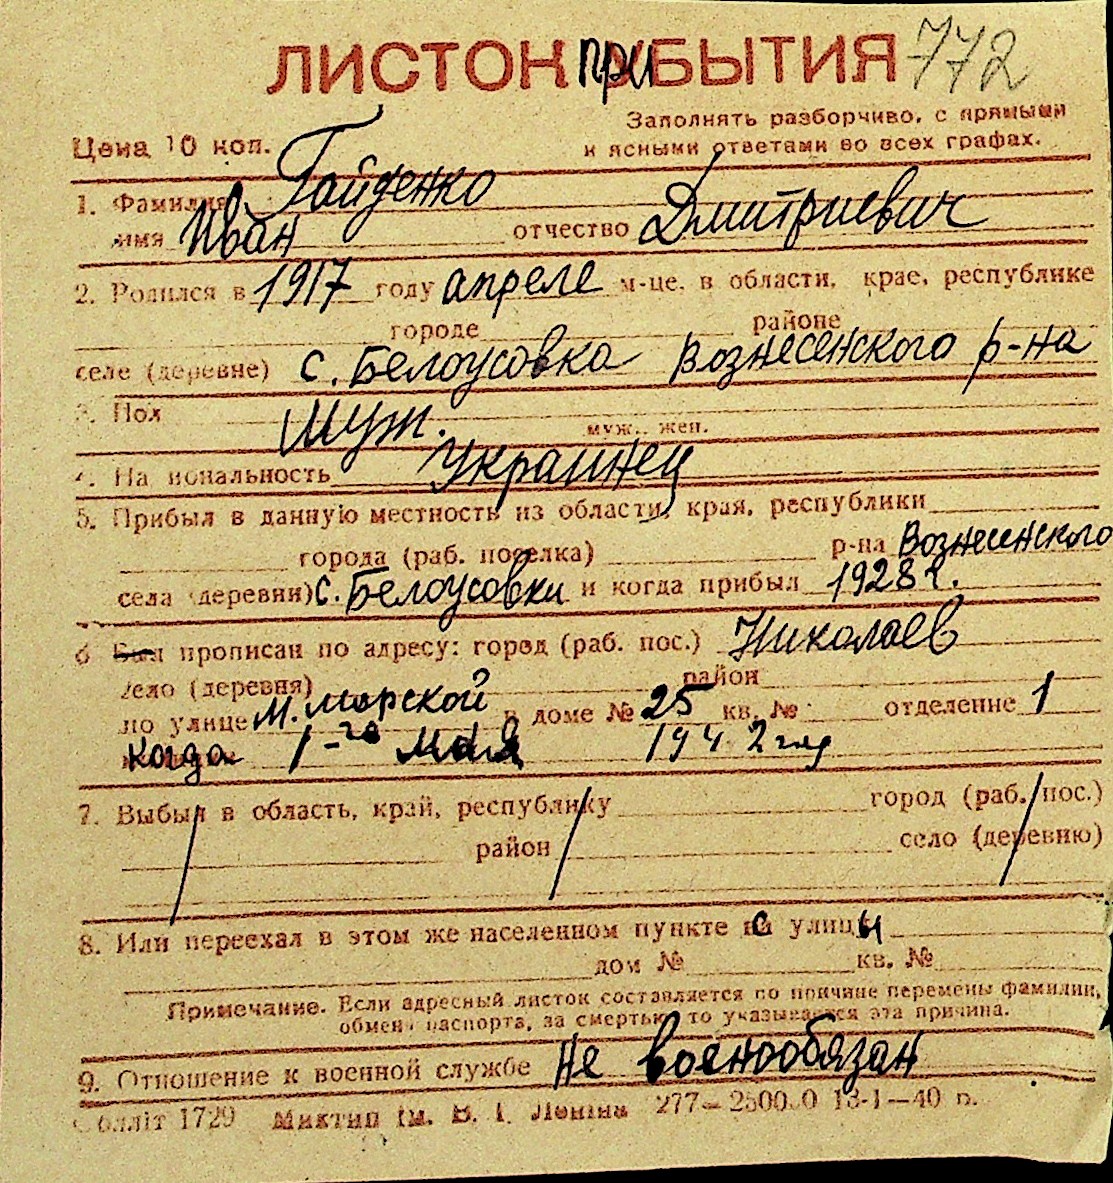 ЛИСТОК ПРИБЫТИЯ 772
Заполнять разборчиво, с прямыми
Цена 10 коп. и ясными ответами во всех графах.
1. Фамилия Гайденко
имя Иван отчество Дмитриевич
2. Родился в 1917 году апреле м-це, в области, крае, республике
городе районе
селе (деревне) с. Белоусовка Вознесенского р-на
3. Пол Муж. муж., жен.
4. Национальность Украинец
5. Прибыл в данную местность из области, края, республики
города (раб. поселка) р-на Вознесенского
села (деревни) с. Белоусовки и когда прибыл 1928 г.
6 прописан по адресу: город (раб. пос.) Николаев
село (деревня) район
по улице М. Морской в доме № 25 кв. № отделение 1
когда 1-го мая 1942 год
7. Выбыл в область, край, республику город (раб. пос.)
район село (деревню)
8. Или переехал в этом же населенном пункте с улицы
дом № кв. №
Примечание. Если адресный листок составляется по причине перемены фамилии,
обмена паспорта, за смертью, то указывается эта причина.
9. Отношение к военной службе Не военнообязан
1729 Миктип ім. В. І. Леніна 277— 13-1—40 р.